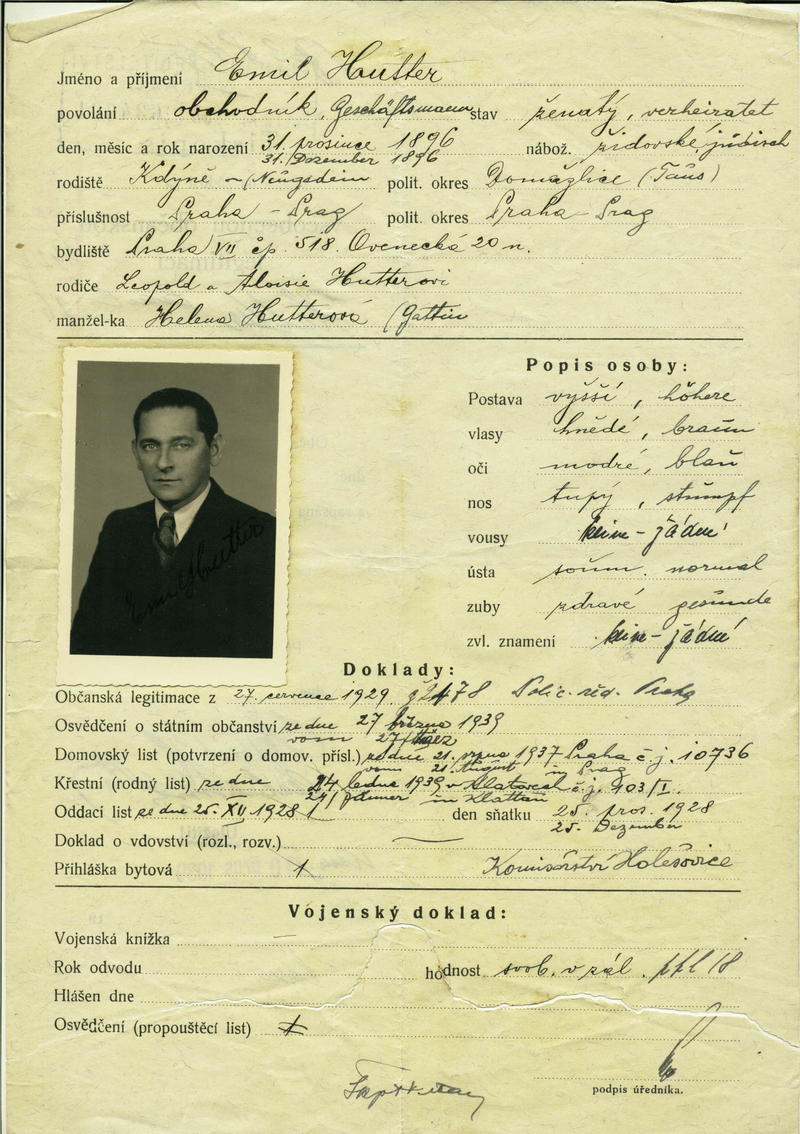 Jméno a příjmení Emil Hutter
povolání obchodník, Geschäftsmann stav ženatý, verheiratet
den, měsíc a rok narození 31. prosince 1896 nábož. židovské, jüdisch
31. Dezember 1896
rodiště Kdýně - (Neugedein polit. okres Domažlice (Taus)
příslušnost Praha - Prag polit. okres Praha - Prag
bydliště Praha VII čp. 518. Ovenecká 20 n.
rodiče Leopold a Aloisie Hutterovi
manžel-ka Helena Hutterová (Gattin
Popis osoby:
Postava vyšší, höhere
vlasy hnědé, braun
oči modré, blau
nos tupý, stumpf
vousy keine - žádné
ústa soum. normal
zuby zdravé gesunde
zvl. znamení keine - žádné
Emil Hutter
Doklady:
Občanská legitimace z 27. července 1929 Polic. řed. Praha
Osvědčení o státním občanství ze dne 27 března 1939
vom 27/
Domovský list (potvrzení o domov. přísl.) ze dne 21. srpna 1937 Praha č.j. 10736
vom 21. August in Prag
Křestní (rodný list) ze dne 24 ledna 1939 v Klatovech č.j. 403/I.
24/ Jänner in Klattau
Oddací list ze dne 25. XII. 1928 den sňatku 25. pros. 1928
25. Dezember
Doklad o vdovství (rozl., rozv.) —
Přihláška bytová Komisařství Holešovice
Vojenský doklad:
Vojenská knížka —
Rok odvodu hodnost svob. v zál. 18
Hlášen dne
Osvědčení (propouštěcí list)
podpis úředníka.